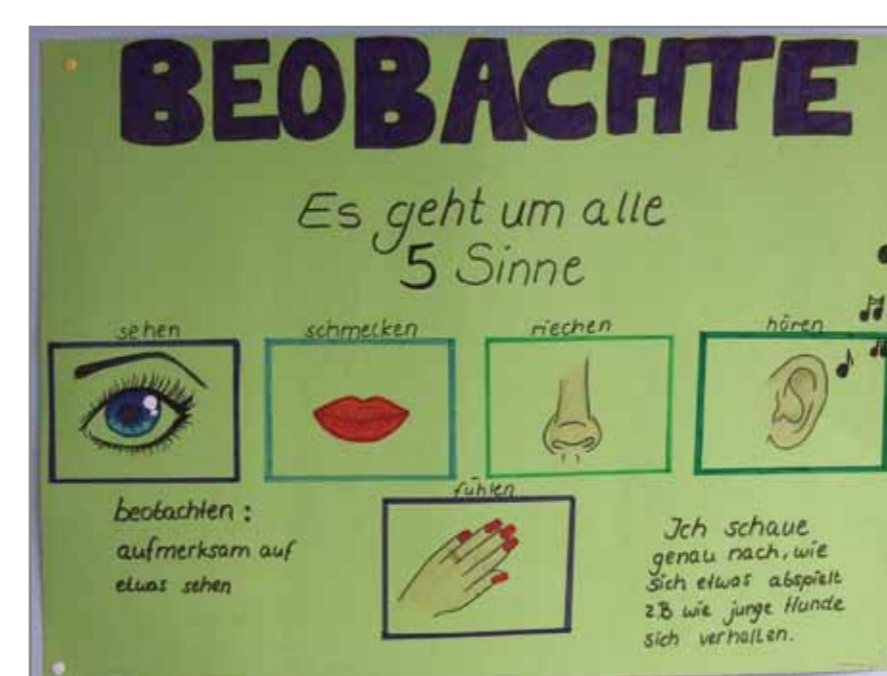 BEOBACHTE
Es geht um alle
5 Sinne
sehen
schmecken
riechen
hören
fühlen
beobachten :
aufmerksam auf
etwas sehen
Ich schaue
genau nach, wie
sich etwas abspielt
z.B wie junge Hunde
sich verhalten.